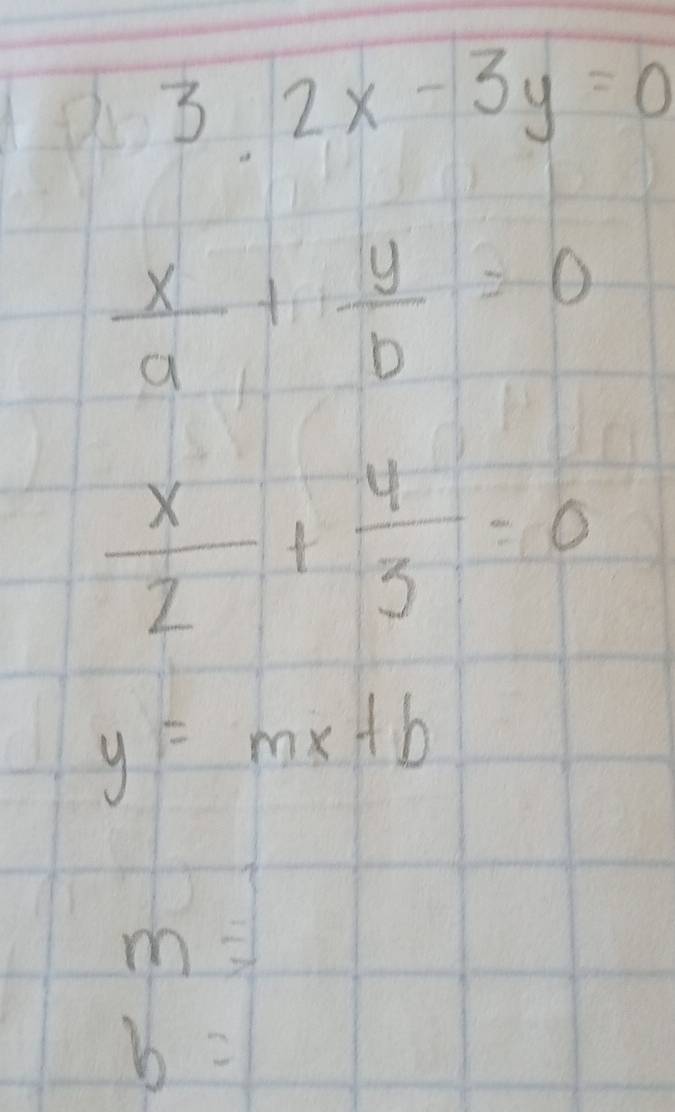 3. 2x - 3y = 0
x/a + y/b = 0
x/2 + y/3 = 0
y = mx + b
m =
b =